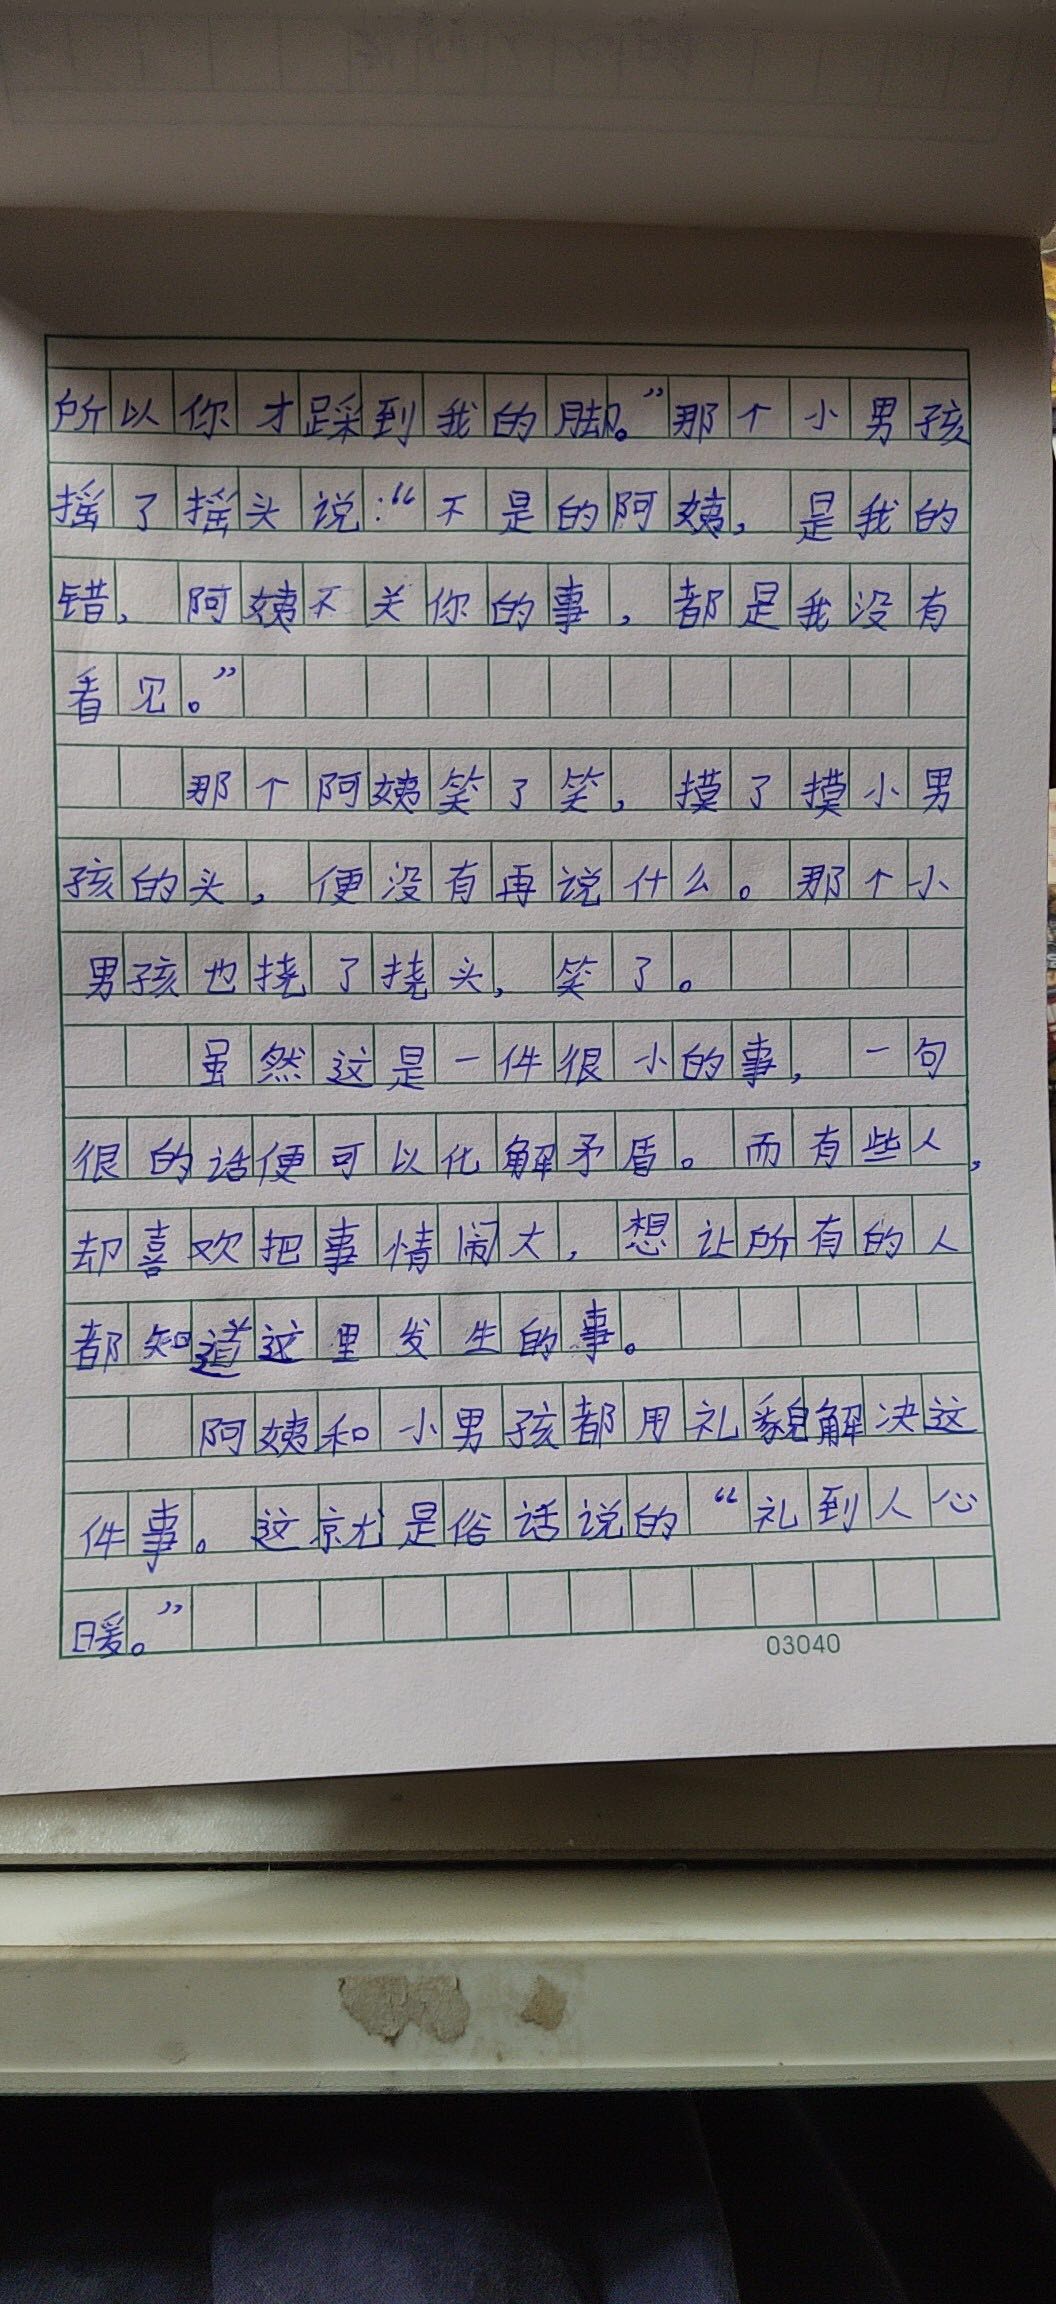 所以你才踩到我的脚。”那个小男孩
摇了摇头说:“不是的阿姨，是我的
错，阿姨不关你的事，都是我没有
看见。”
那个阿姨笑了笑，摸了摸小男
孩的头，便没有再说什么。那个小
男孩也挠了挠头，笑了。
虽然这是一件很小的事，一句
很的话便可以化解矛盾。而有些人，
却喜欢把事情闹大，想让所有的人
都知道这里发生的事。
阿姨和小男孩都用礼貌解决这
件事。这就是俗话说的“礼到人心
暖。”
03040